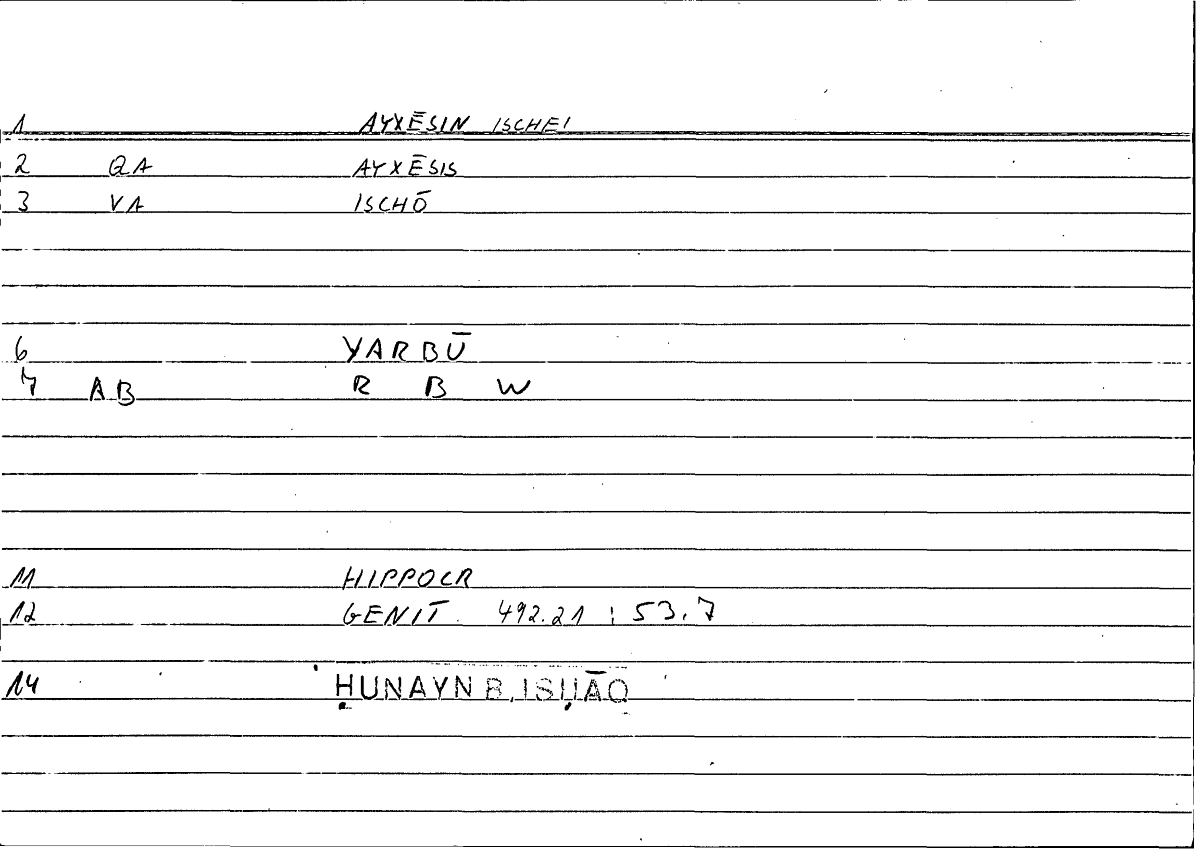 1 AYXĒSIN ISCHEI
2 QA AYXĒSIS
3 VA ISCHŌ
6 YARBŪ
7 AB R B W
11 HIPPOCR
12 GENIT. 492.21 ; 53.7
14 ḤUNAYN B. ISḤĀQ